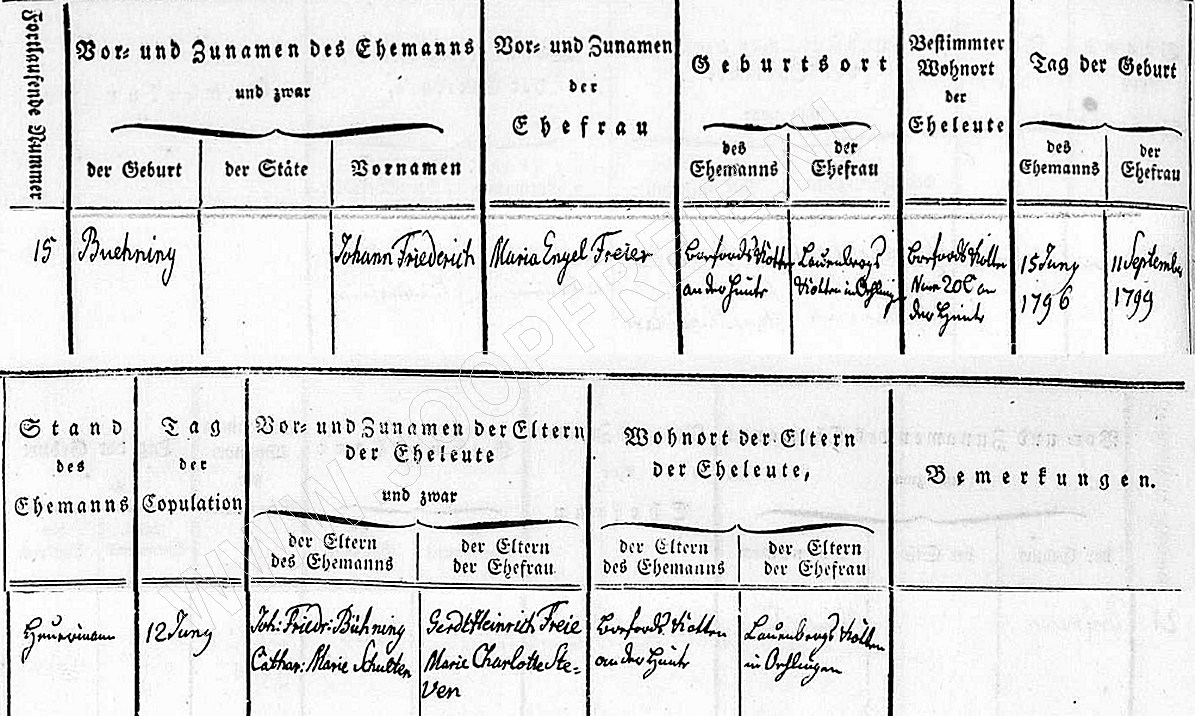 Fortlaufende Nummer
Vor- und Zunamen des Ehemanns
und zwar
der Geburt
der Stäte
Vornamen
Vor- und Zunamen
der
Ehefrau
Geburtsort
des
Ehemanns
der
Ehefrau
Bestimmter
Wohnort
der
Eheleute
Tag der Geburt
des
Ehemanns
der
Ehefrau
15
Buehning
Johann Friederich
Maria Engel Freier
an der Hunte
Lauenbergs
Kotten in
Num 206 an
der Hunte
15 Juny
1796
11 September
1799
Stand
des
Ehemanns
Tag
der
Copulation
Vor- und Zunamen der Eltern
der Eheleute
und zwar
der Eltern
des Ehemanns
der Eltern
der Ehefrau
Wohnort der Eltern
der Eheleute,
der Eltern
des Ehemanns
der Eltern
der Ehefrau
Bemerkungen.
Heuermann
12 Juny
Joh: Friedr: Bühning
Cathar: Marie Schulten
Gerdt Heinrich Freie
Marie Charlotte Ste-
ven
Kotten
an der Hunte
Lauenbergs Kotten
in Oehlingen
WWW.SOOPFREIE.NL